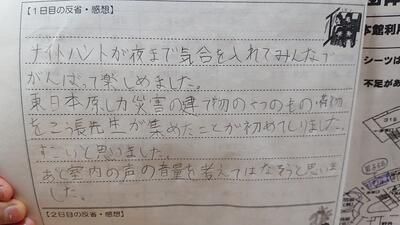 【1日目の反省・感想】
ナイトハントが夜まで気合を入れてみんなで
がんばって楽しめました。
東日本原し力災害の建て物の1つのもの
をこう長先生が集めたことが初めてしりました。
すごいと思いました。
あと室内の声の音量を考えてはなそうと思いま
した。
【2日目の反省・感想】
本館利用
シーツは
不足があ